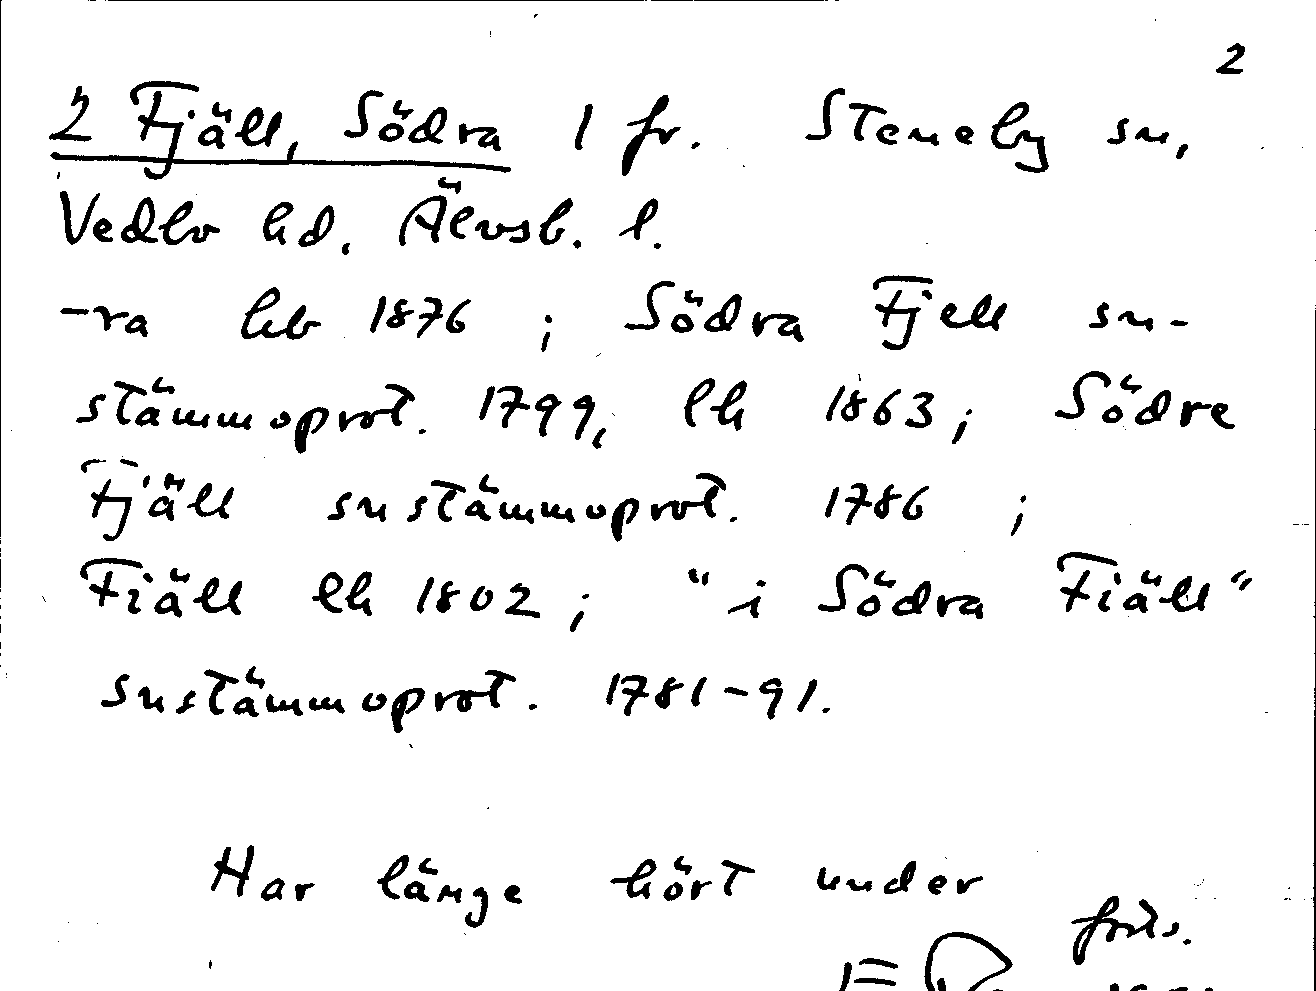 2
2 Fjäll, Södra 1 fr. Steneby sn,
Vedbo hd. Älvsb. l.
-ra hb 1876 ; Södra Fjell sn-
stämmoprot. 1799, lh 1863 ; Södre
Fjäll snstämmoprot. 1786 ;
Fiäll lh 1802 ; "i Södra Fiäll"
snstämmoprot. 1781-91.
Har länge hört under
forts.